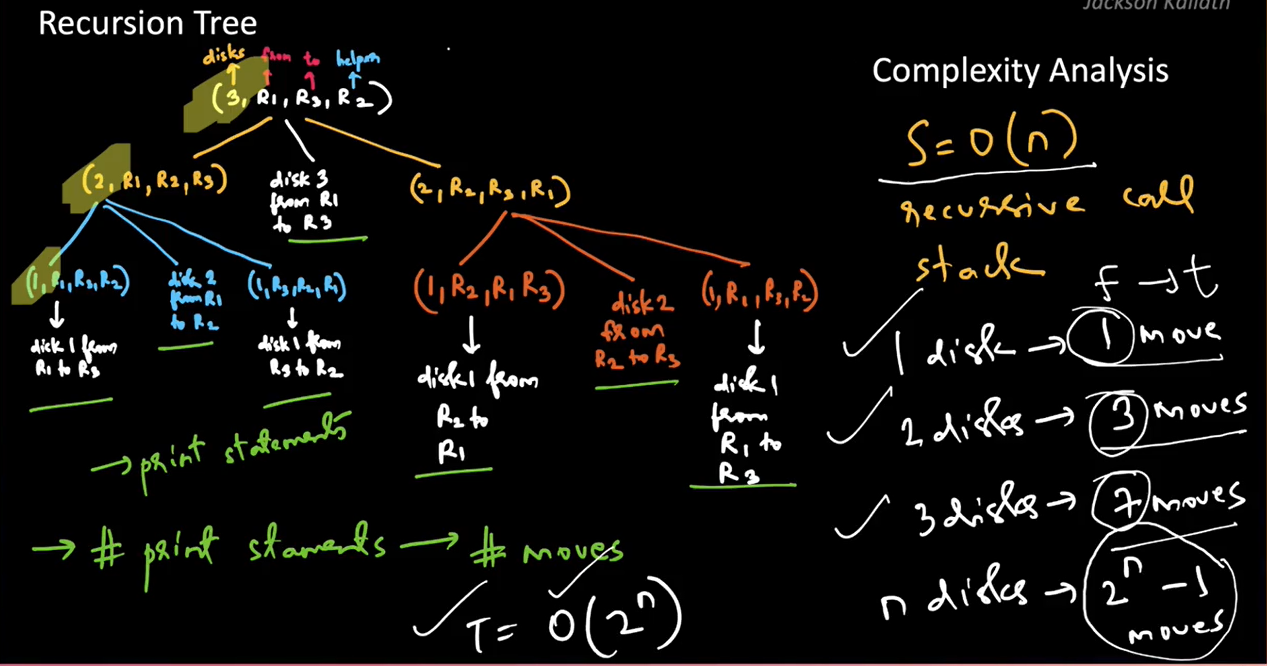 Jackson Kailath
Recursion Tree
disks from to
(3, R1, R3, R2)
(2, R1, R2, R3)
disk 3
from R1
to R3
(2, R2, R3, R1)
(1, R1, R3, R2)
disk 2
from R1
to R2
(1, R3, R2, R1)
(1, R2, R1 R3)
disk 2
from
R2 to R3
(1, R1, R3, R2)
disk 1 from
R1 to R3
disk 1 from
R3 to R2
disk 1 from
R2 to
R1
disk 1
from
R1 to
R3
→ print statements
→ # print staments → # moves
T = O(2^n)
Complexity Analysis
S = O(n)
recursive call
stack
f → t
1 disk → 1 move
2 disks → 3 moves
3 disks → 7 moves
n disks → 2^n - 1
moves